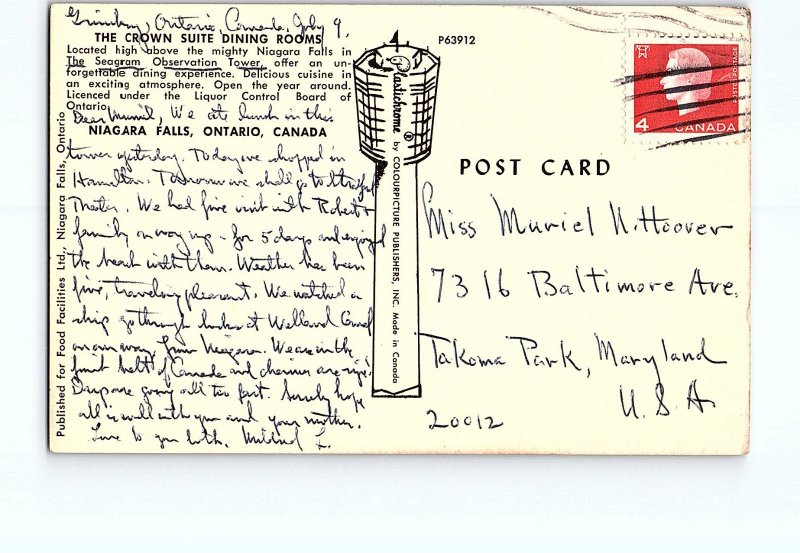 Grimsby, Ontario, Canada, July 9,
THE CROWN SUITE DINING ROOMS
Located high above the mighty Niagara Falls in
The Seagram Observation Tower, offer an un-
forgettable dining experience. Delicious cuisine in
an exciting atmosphere. Open the year around.
Licenced under the Liquor Control Board of
Ontario.
NIAGARA FALLS, ONTARIO, CANADA
Dear Muriel, We ate lunch in this
tower yesterday. Today we shopped in
Hamilton. Tomorrow we shall go to Stratford
Theater. We had fine visit with Robert &
family on way up - for 5 days and enjoyed
the beach with them. Weather has been
fine, traveling pleasant. We watched a
ship go through locks at Welland Canal
on our way from Niagara. We are in the
fruit belt of Canada and cherries are ripe.
Days are going all too fast. Surely hope
all is well with you and your mother.
Love to you both, Mildred L.
Published for Food Facilities Ltd., Niagara Falls, Ontario
Plastichrome ® by COLOURPICTURE PUBLISHERS, INC. Made in Canada
P63912
4 CANADA
POSTES POSTAGE
POST CARD
Miss Muriel N. Hoover
7316 Baltimore Ave.
Takoma Park, Maryland
U.S.A
20012